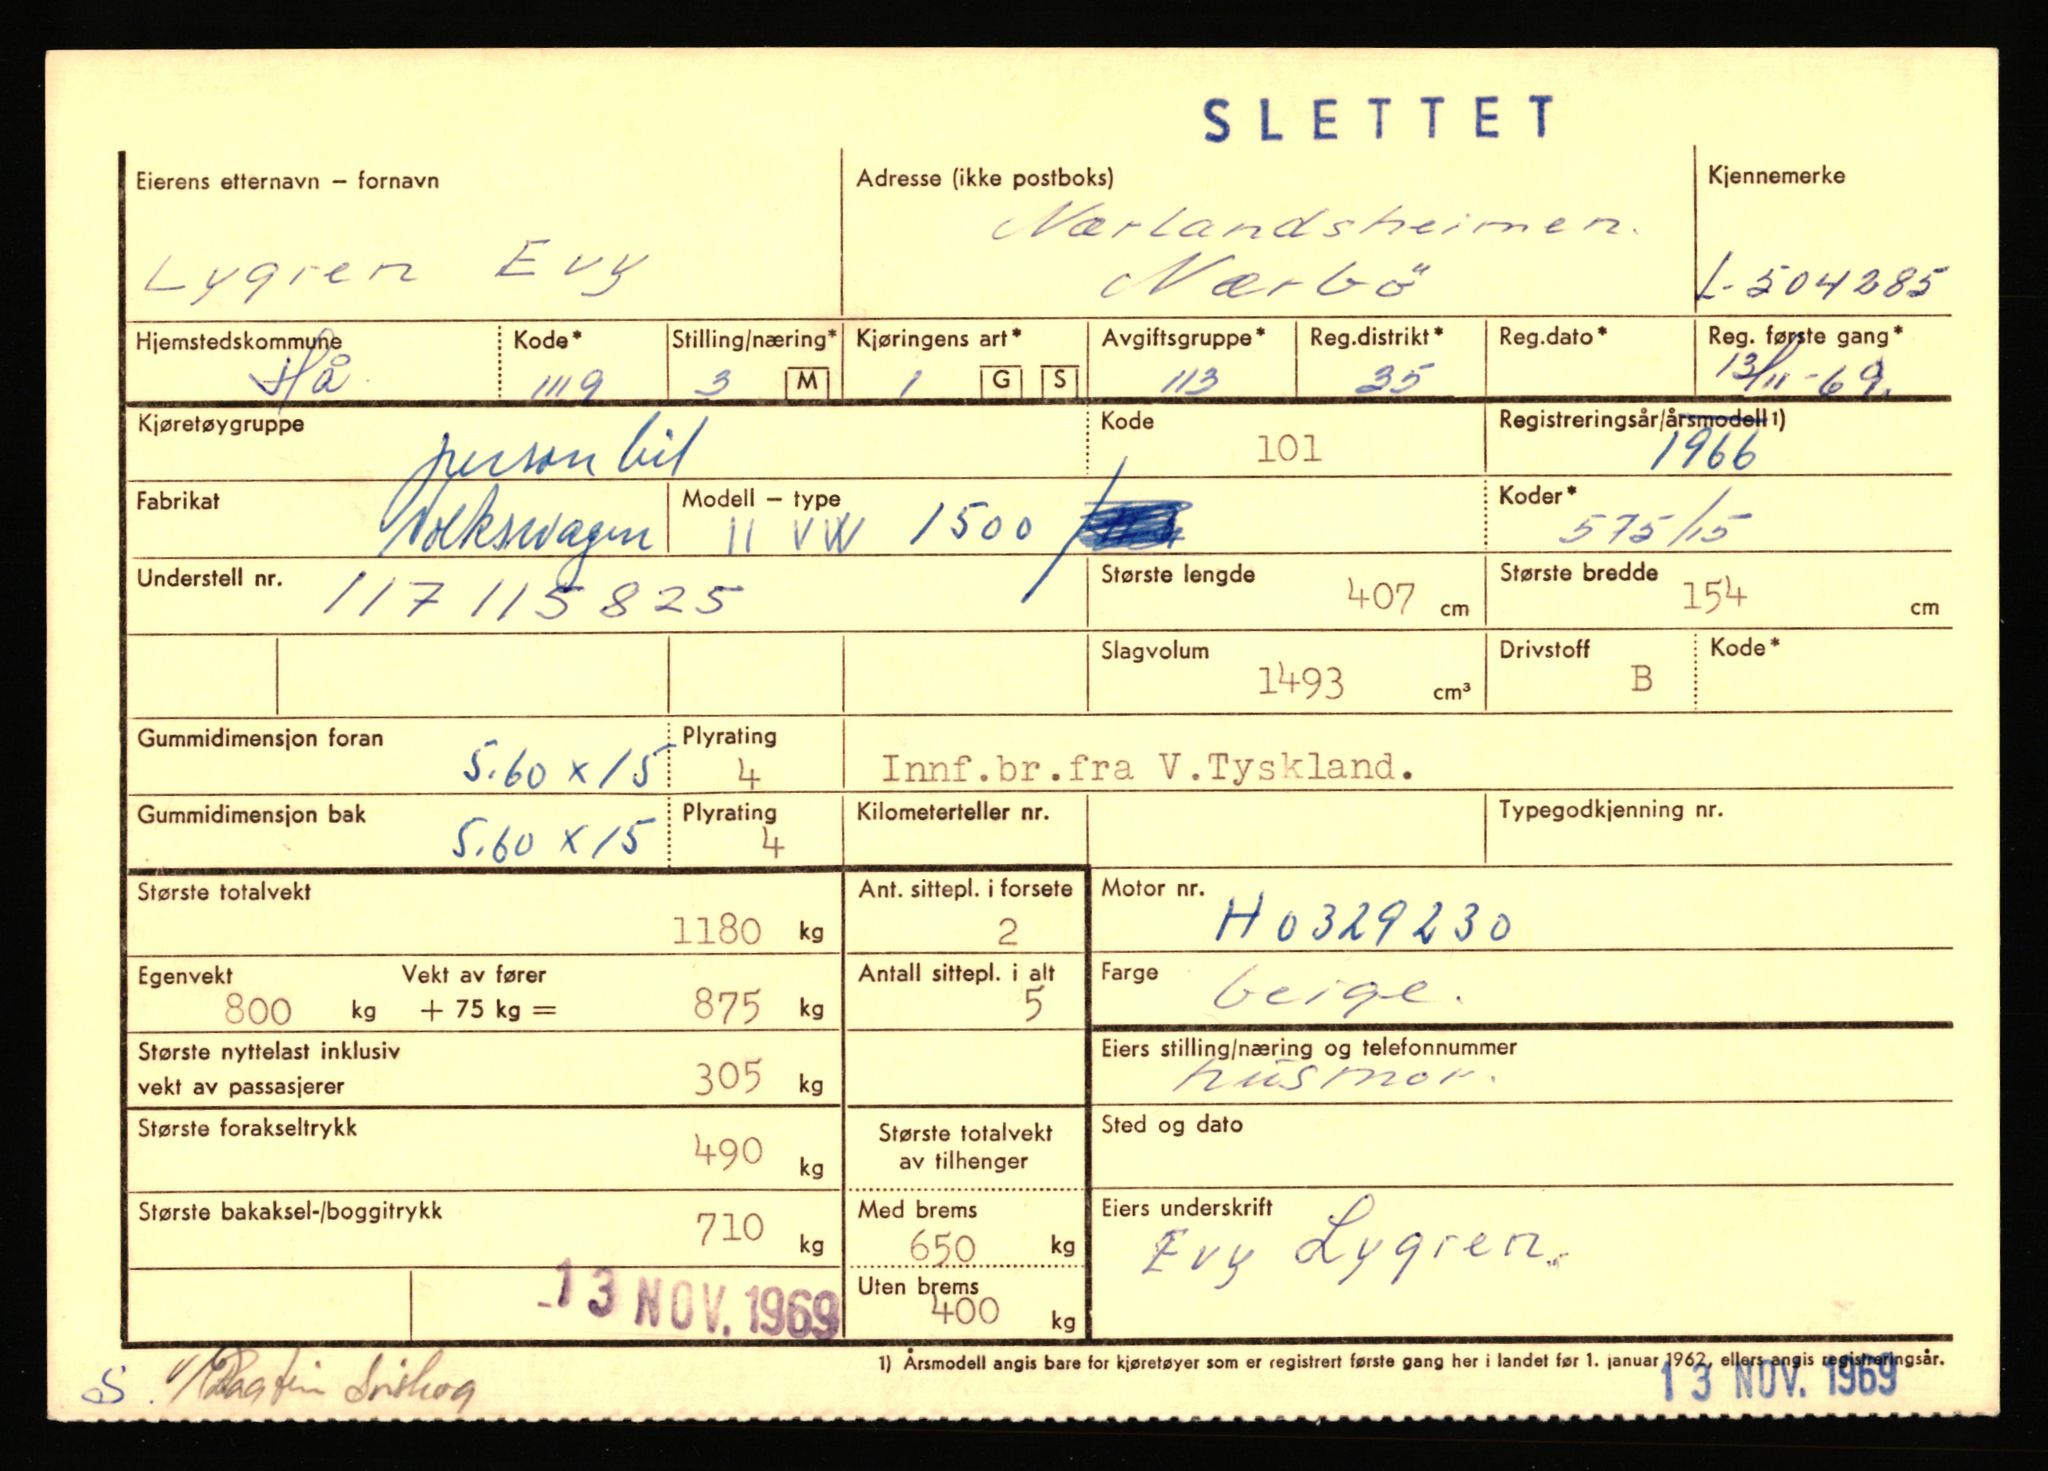 SLETTET
Eierens etternavn – fornavn
Adresse (ikke postboks)
Kjennemerke
Nærlandsheimen.
Lygren Evy
Nærbö
L-504285
Hjemstedskommune
Kode*
Stilling/næring*
Kjøringens art*
Avgiftsgruppe*
Reg.distrikt*
Reg.dato*
Reg. første gang*
Hå
1119
3 M
1 G S
113
35
13/11-69.
Kjøretøygruppe
personbil
Kode
101
Registreringsår/årsmodell 1)
1966
Fabrikat
Volkswagen
Modell – type
11 VW 1500 /
Koder*
575/15
Understell nr.
117115825
Største lengde
407 cm
Største bredde
154 cm
Slagvolum
1493 cm³
Drivstoff
B
Kode*
Gummidimensjon foran
5.60 x 15
Plyrating
4
Innf.br.fra V.Tyskland.
Gummidimensjon bak
5.60 x 15
Plyrating
4
Kilometerteller nr.
Typegodkjenning nr.
Største totalvekt
1180 kg
Ant. sittepl. i forsete
2
Motor nr.
H0329230
Egenvekt
800 kg
Vekt av fører
+ 75 kg =
875 kg
Antall sittepl. i alt
5
Farge
beige.
Største nyttelast inklusiv
vekt av passasjerer
305 kg
Eiers stilling/næring og telefonnummer
husmor.
Største forakseltrykk
490 kg
Største totalvekt
av tilhenger
Sted og dato
Største bakaksel-/boggitrykk
710 kg
Med brems
650 kg
Eiers underskrift
Evy Lygren.
Uten brems
400 kg
13 NOV. 1969
1) Årsmodell angis bare for kjøretøyer som er registrert første gang her i landet før 1. januar 1962, ellers angis registreringsår.
13 NOV. 1969
S.